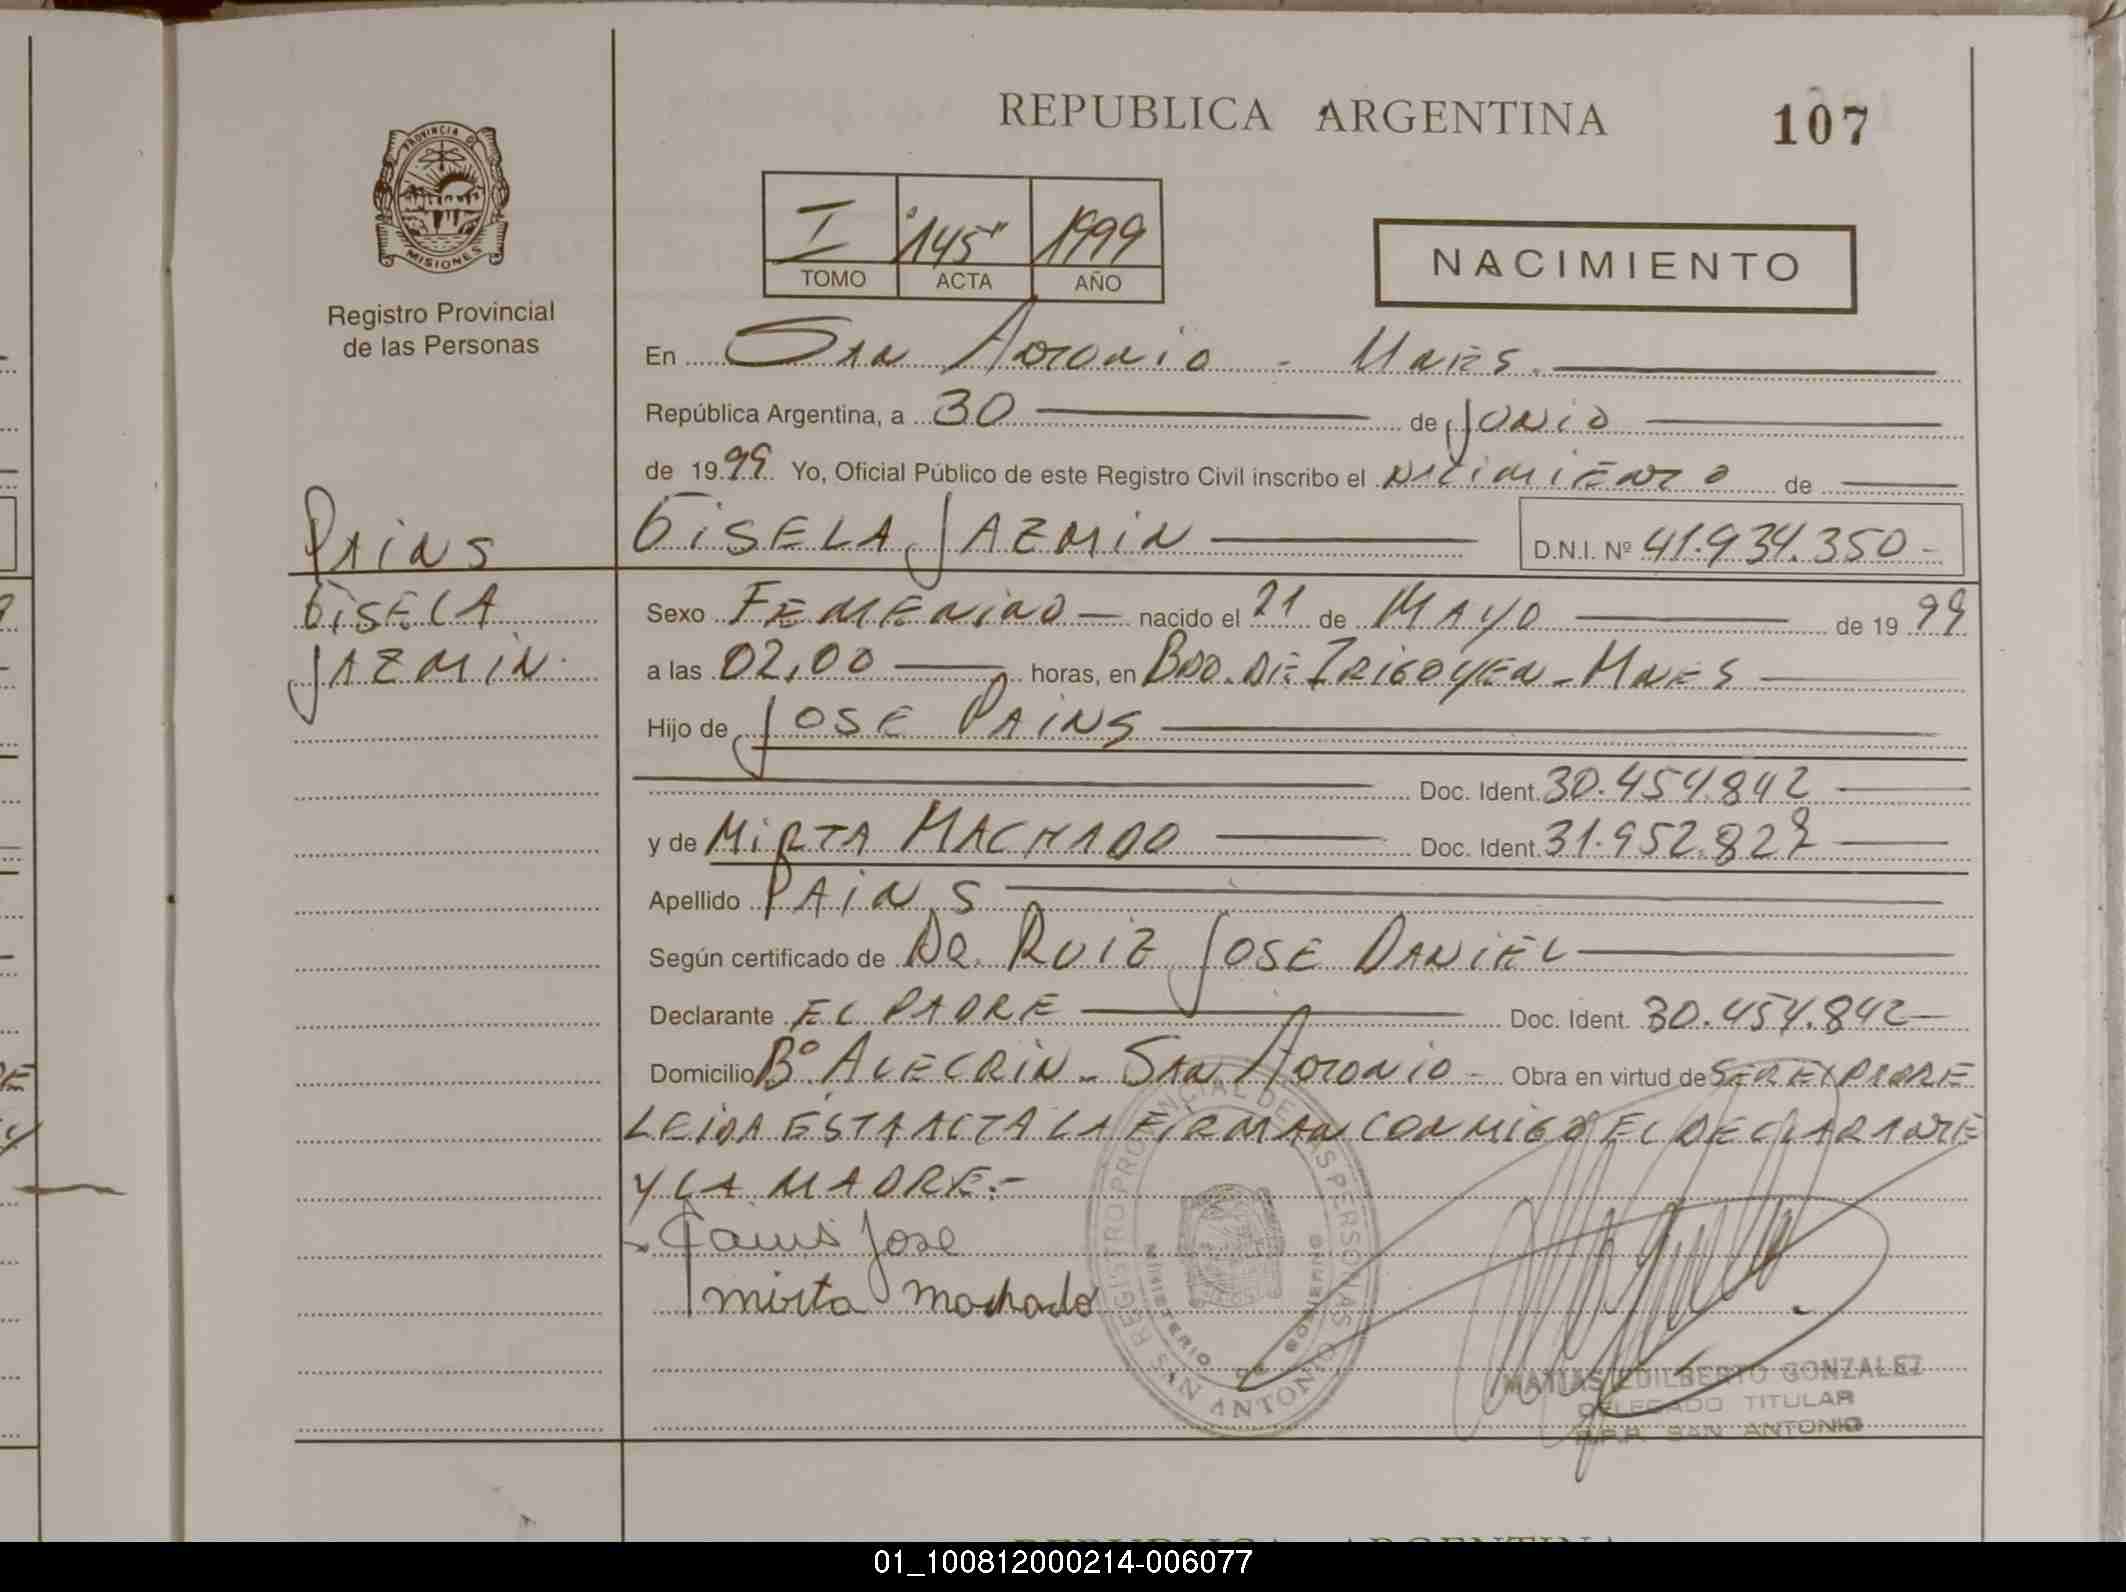 REPUBLICA ARGENTINA
107
PROVINCIA DE
MISIONES
Registro Provincial
de las Personas
I "145" 1999
TOMO ACTA AÑO
NACIMIENTO
En San Antonio - Mnes.
República Argentina, a 30 de Junio
de 1999 Yo, Oficial Público de este Registro Civil inscribo el nacimiento de
GISELA JAZMIN D.N.I. Nº 41.934.350-
PAINS
GISELA
JAZMIN.
Sexo FEMENINO nacido el 21 de MAYO de 1999
a las 02,00 horas, en BDO. DE IRIGOYEN - MNES
Hijo de JOSE PAINS
Doc. Ident. 30.454.842
y de MIRTA MACHADO Doc. Ident. 31.952.829
Apellido PAINS
Según certificado de DR. RUIZ JOSE DANIEL
Declarante EL PADRE Doc. Ident. 30.454.842
Domicilio Bº ALECRIN - SAN ANTONIO - Obra en virtud de SER EL PADRE
LEIDA ESTA ACTA LA FIRMAN CONMIGO EL DECLARANTE
Y LA MADRE.-
Pains Jose
mirta machado
REGISTRO PROVINCIAL DE LAS PERSONAS
MINISTERIO DE GOBIERNO
SAN ANTONIO
MATIAS EDILBERTO GONZALEZ
DELEGADO TITULAR
R.P.P. SAN ANTONIO
REPUBLICA ARGENTINA
01_100812000214-006077